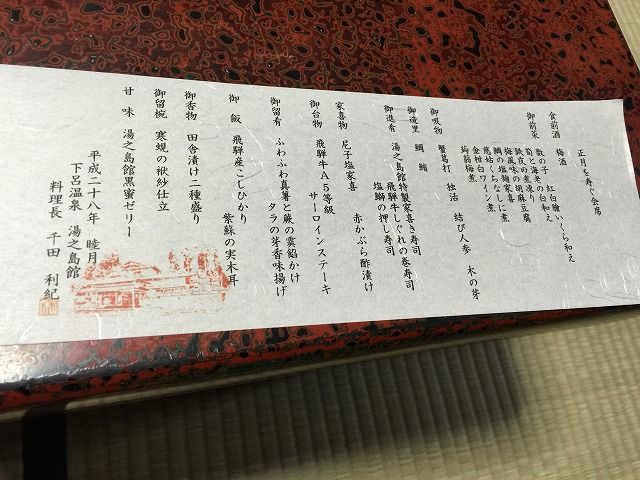 正月を寿ぐ会席
食前酒 梅酒
御前菜 数の子 紅白膾いくら和え
筍と海老の白和え
鋏皮田煮凍り
梅風味の胡麻豆腐
鯛の塩麹家喜
慈姑くちなしに煮
金柑白ワイン煮
蒟蒻梅煮
御吸物 蟹葛打 独活 結び人参 木の芽
御造里 鯛 鮪
御進肴 湯之島館特製家喜き寿司
飛騨牛しぐれの巻寿司
塩鰤の押し寿司
家喜物 尼子塩家喜 赤かぶら酢漬け
御台物 飛騨牛A5等級 サーロインステーキ
御留肴 ふわふわ真薯と蕨の雲餡かけ
タラの芽香味揚げ
御飯 飛騨産こしひかり 紫蘇の実木耳
御香物 田舎漬け二種盛り
御留椀 寒蜆の袱紗仕立
甘味 湯之島館黒蜜ゼリー
平成二十八年 睦月
下呂温泉 湯之島館
料理長 千田 利紀